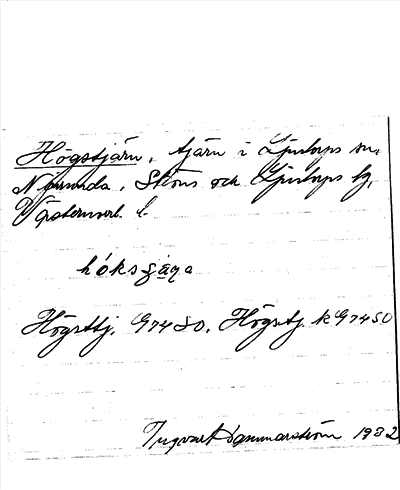 Högstjärn, tjärn i Ljustorps sn,
Njurunda, Sköns och Ljustorps tg,
Västernorrl. l.
hóksʒäga
Högsttj. G74SO, Högstj. k G74SO
Ingvar Hammarström 1932